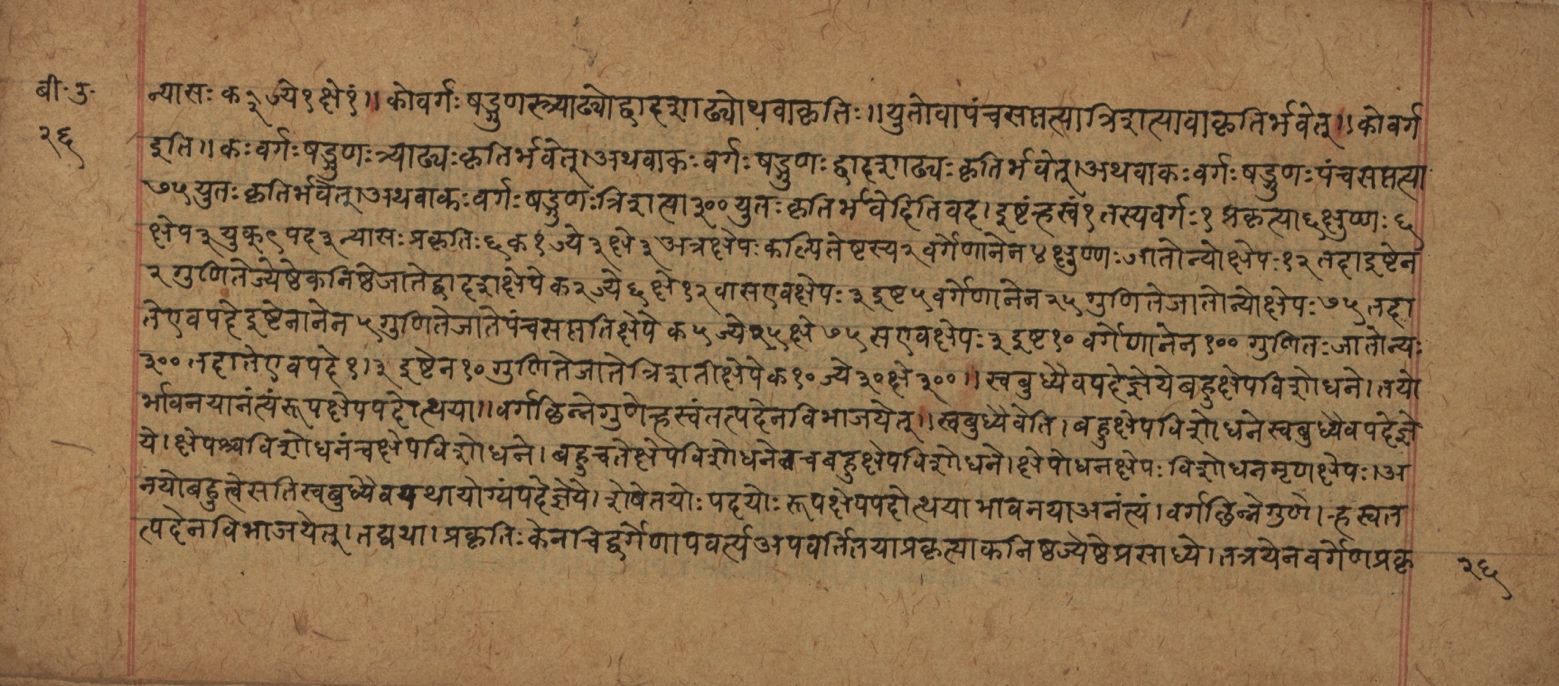 बी॰उ॰
२६
न्यासः क २ ज्ये १ क्षे १ं॥ कोवर्गः षड्गुणस्त्र्याढ्योद्वादशाढ्योथवाकृतिः॥युतोवापंचसप्तत्यात्रिशत्यावाकृतिर्भवेत्॥कोवर्ग
इति॥कःवर्गःषड्गुणःत्र्याढ्यःकृतिर्भवेत्।अथवाकःवर्गःषड्गुणःद्वादशाढ्यःकृतिर्भवेत्।अथवाकःवर्गःषड्गुणःपंचसप्तत्या
७५युतःकृतिर्भवेत्।अथवाकःवर्गःषड्गुणःत्रिशत्या३००युतःकृतिर्भवेदितिवद।इष्टंह्रस्वं१तस्यवर्गः१प्रकृत्या६क्षुण्णः६
क्षेप३युक्९पद३न्यासःप्रकृतिः६क१ज्ये३क्षे३अत्रक्षेपःकल्पितेष्टस्य२वर्गेणानेन४क्षुण्णःजातोन्योक्षेपः१२तदाइष्टेन
२गुणितेज्येष्ठेकनिष्ठेजातेद्वादशक्षेपेक२ज्ये६क्षे१२वासएवक्षेपः३इष्ट५वर्गेणानेन२५गुणितेजातोन्योक्षेपः७५तदा
तेएवपदेइष्टेनानेन५गुणितेजातेपंचसप्ततिक्षेपेक५ज्ये१५क्षे७५सएवक्षेपः३इष्ट१०वर्गेणानेन१००गुणितःजातोन्यः
३००तदातेएवपदे१।३इष्टेन१०गुणितेजातेत्रिशतीक्षेपेक१०ज्ये३०क्षे३००॥स्वबुध्यैवपदेज्ञेयेबहुक्षेपविशोधने।तयो
र्भावनयानंत्यंरूपक्षेपपदोत्थया॥वर्गछिन्नेगुणेह्रस्वंतत्पदेनविभाजयेत्॥स्वबुध्यैवेति।बहुक्षेपविशोधनेस्वबुध्यैवपदेज्ञे
ये।क्षेपश्चविशोधनंचक्षेपविशोधने।बहुचतेक्षेपविशोधनेचबहुक्षेपविशोधने।क्षेपोधनक्षेपःविशोधनमृणक्षेपः।अ
नयोबहुत्वेसतिस्वबुध्यैवयथायोग्यंपदेज्ञेये।शेषेतयोःपदयोःरूपक्षेपपदोत्थयाभावनयाअनंत्यं।वर्गछिन्नेगुणे।ह्रस्वत
त्पदेनविभाजयेत्।तद्यथा।प्रकृतिःकेनचिद्वर्गेणापवर्त्यअपवर्तितयाप्रकृत्याकनिष्ठज्येष्ठेप्रसाध्ये।तत्रयेनवर्गेणप्रकृ
२६